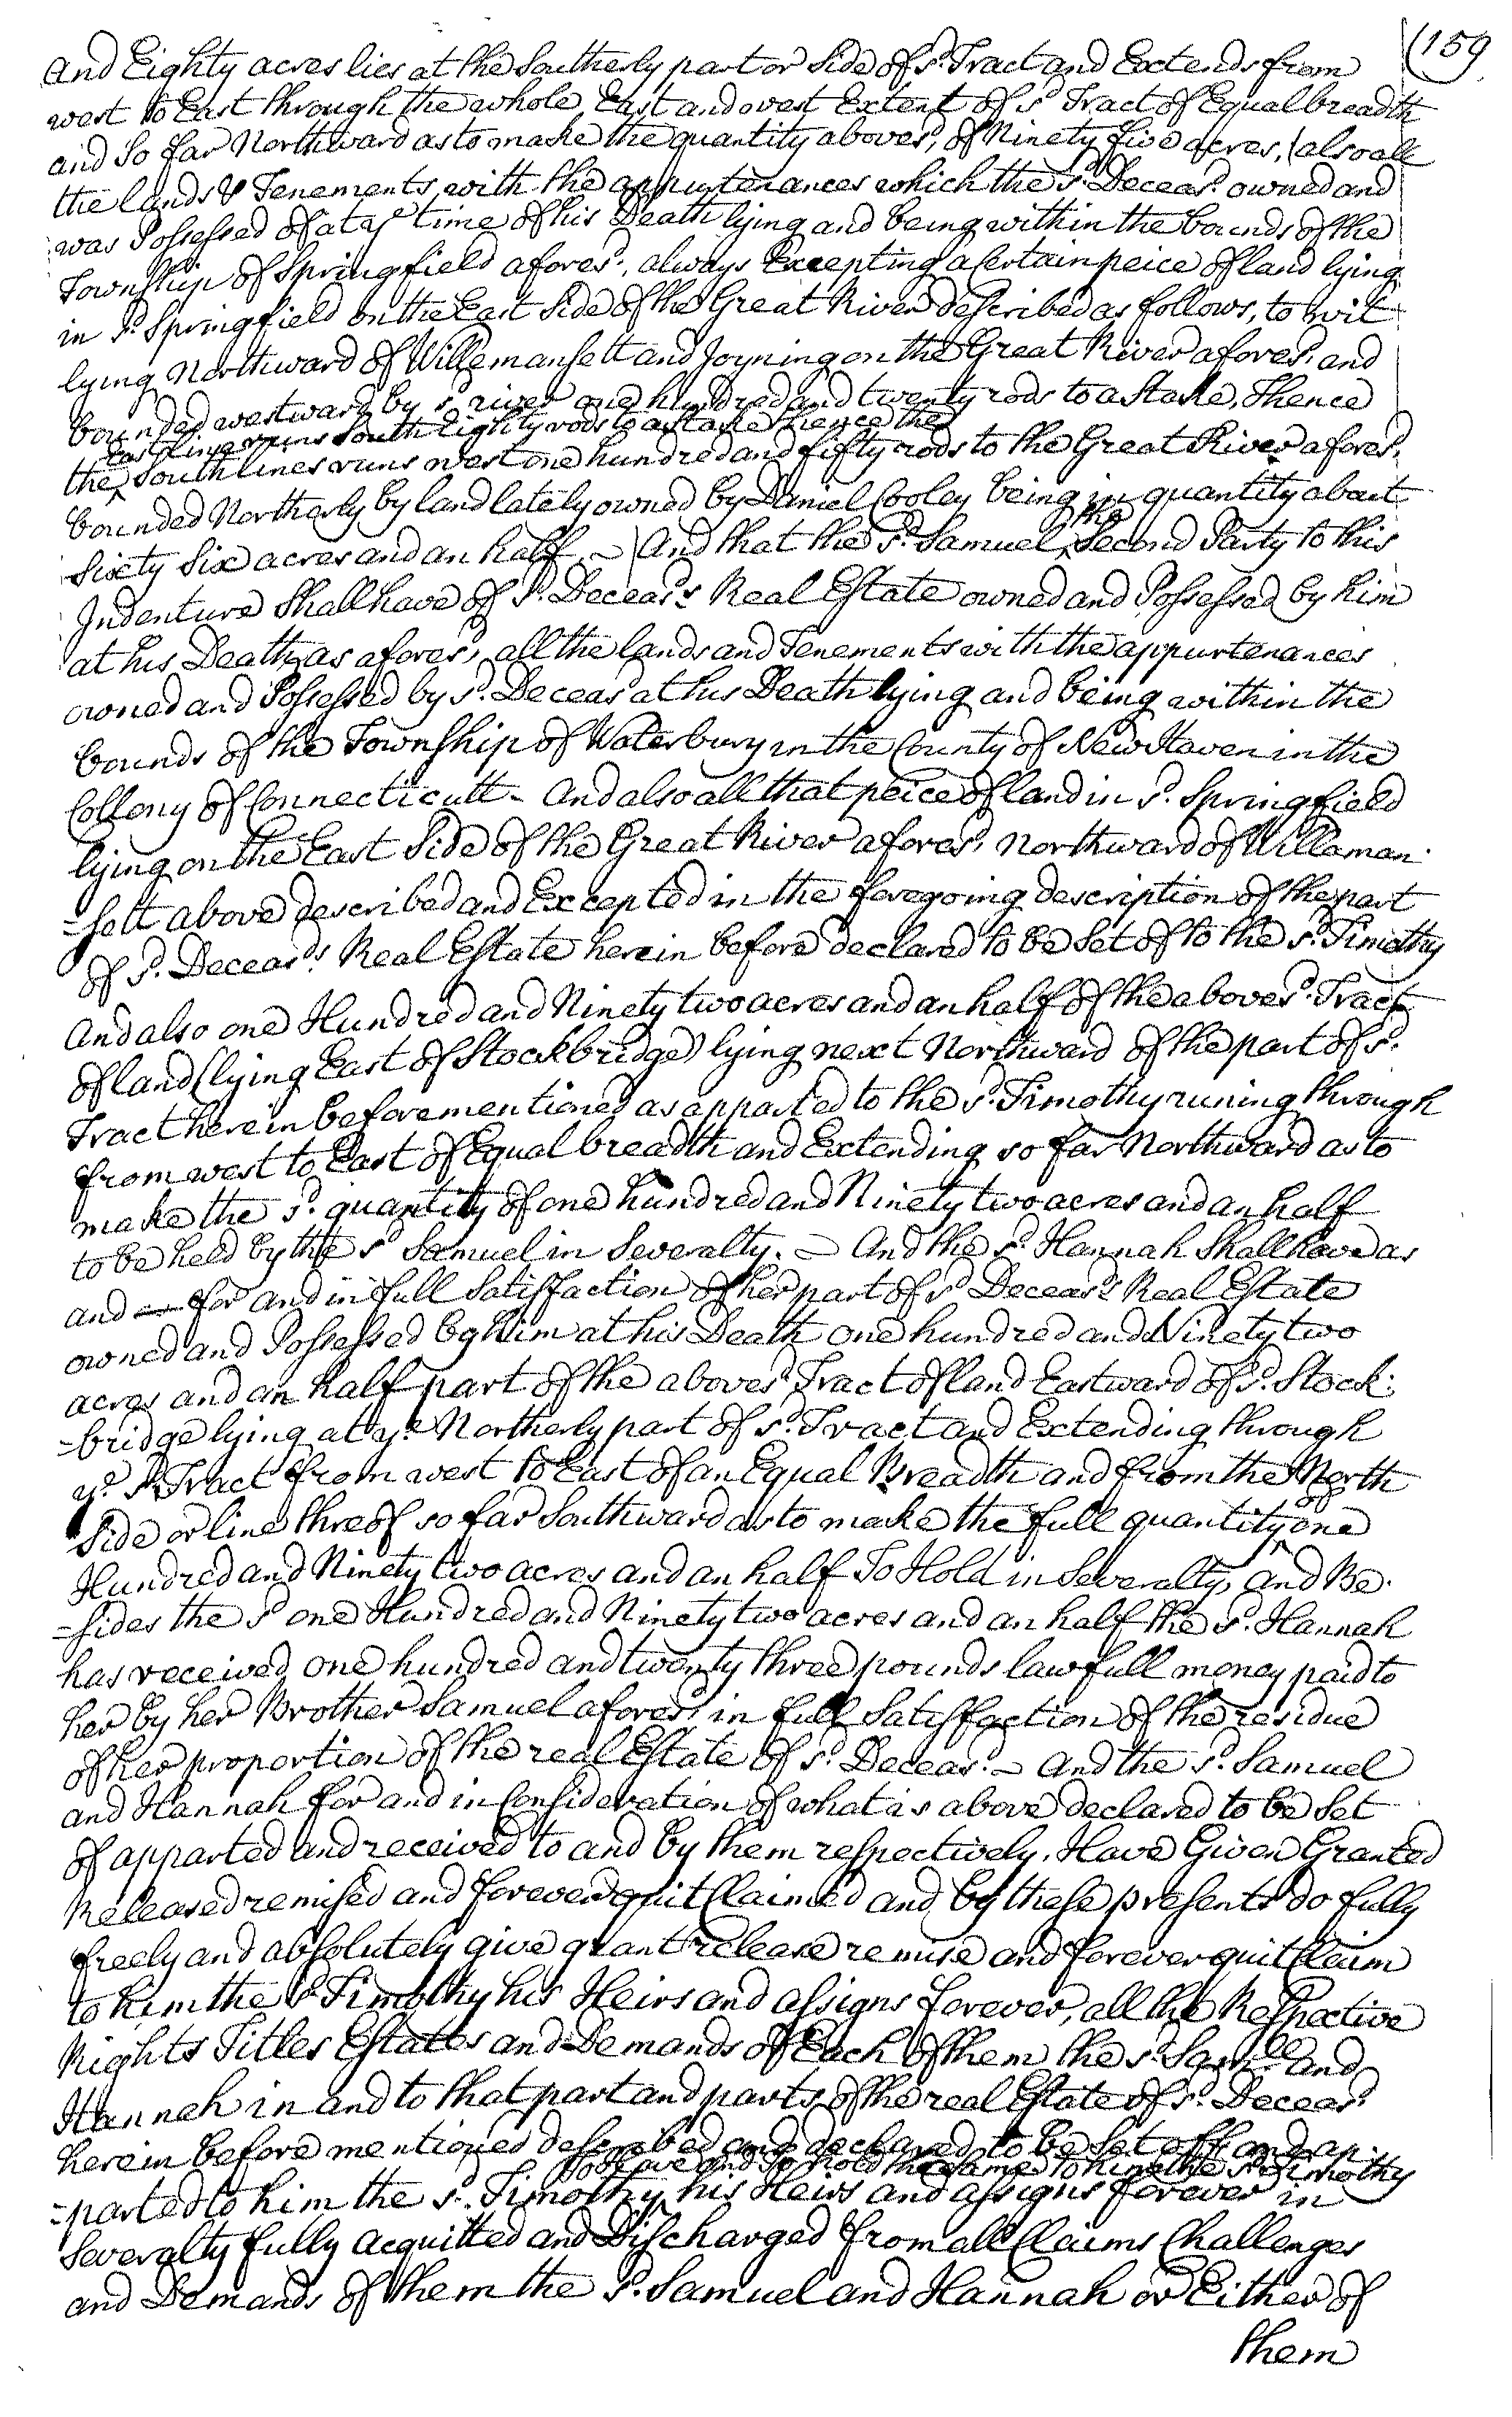 (159
and Eighty acres lies at the Southerly part or Side of sd. Tract and Extends from
west to East through the whole East and west Extent of sd Tract of Equal breadth
and So far Northward as to make the quantity aboves,d of Ninety five acres, (also all
the lands & Tenements with the appurtenances which the sd. Deceasd. owned and
was Possessed of at ye time of his Death lying and being within the bounds of the
Township of Springfield aforesd., always Excepting a Certain peice of land lying
in sd. Springfield on the East Side of the Great River described as follows, to wit
lying Northward of Willemansett and Joyning on the Great River aforesd. and
bounded westward by sd. river one hundred and twenty rods to a Stake, Thence
East line runs South Eighty rods to a stake thence the
the ^ South lines runs west one hundred and fifty rods to the Great River aforesd.
bounded Northerly by land lately owned by Daniel Cooley being in quantity about
the
Sixty Six acres and an half. ~ (And that the sd. Samuel ^ Second Party to this
Indenture Shall have of sd. Deceasds. Real Estate owned and Possessed by him
at his Death as aforesd, all the lands and Tenements with the appurtenances
owned and Possessed by sd. Deceasd at his Death lying and being within the
bounds of the Township of Waterbury in the County of New Haven in the
Collony of Connecticutt - And also all that peice of land in sd. Springfield
lying on the East Side of the Great River aforesd. Northward of Willaman-
=sett above described and Excepted in the foregoing description of the part
of sd. Deceasds. Real Estate herein before declared to be Set of to the sd. Timothy
And also one Hundred and Ninety two acres and an half of the abovesd. Tract
of land (lying East of Stockbridge) lying next Northward of the part of sd.
Tract herein before mentioned as apparted to the sd. Timothy runing through
from west to East of Equal breadth and Extending so far Northward as to
make the sd. quantity of one hundred and Ninety two acres and an half
to be held by the sd Samuel in Severalty. ~ And the sd. Hannah Shall have as
and for and in full Satisffaction of her part of sd Deceasds. Real Estate
owned and Possessed by him at his Death one hundred and Ninety two
acres and an half part of the abovesd Tract of land Eastward of sd. Stock-
=bridge lying at ye. Northerly part of sd. Tract and Extending through
ye. sd Tract from west to East of an Equal Breadth and from the North
of
Side or line threof so far Southward as to make the full quantity ^ one
Hundred and Ninety two acres and an half To Hold in Severalty, And Be-
=sides the sd one Hundred and Ninety two acres and an half the sd. Hannah
has received one hundred and twenty three pounds lawfull money paid to
her by her Brother Samuel aforesd. in full Satisffaction of the residue
of her proportion of the real Estate of sd. Deceasd. ~ And the sd. Samuel
and Hannah for and in Consideration of what is above declared to be Set
of apparted and received to and by them respectively, Have Given Granted
Released remised and forever quit Claimed and by these presents do fully
freely and absolutely give grant release remise and forever quit Claim
to him the sd Timothy his Heirs and assigns forever, all the Respective
Rights Titles Estates and Demands of Each of them the sd. Samll. and
Hannah in and to that part and parts of the real Estate of sd. Deceasd.
herein before mentioned described and declared to be Set off and ap-
To Have and To Hold the same to him the sd. Timothy
=parted to him the sd. Timothy ^ his Heirs and assigns forever in
Severalty fully acquitted and Discharged from all Claims Challenges
and Demands of them the sd. Samuel and Hannah or Either of
them